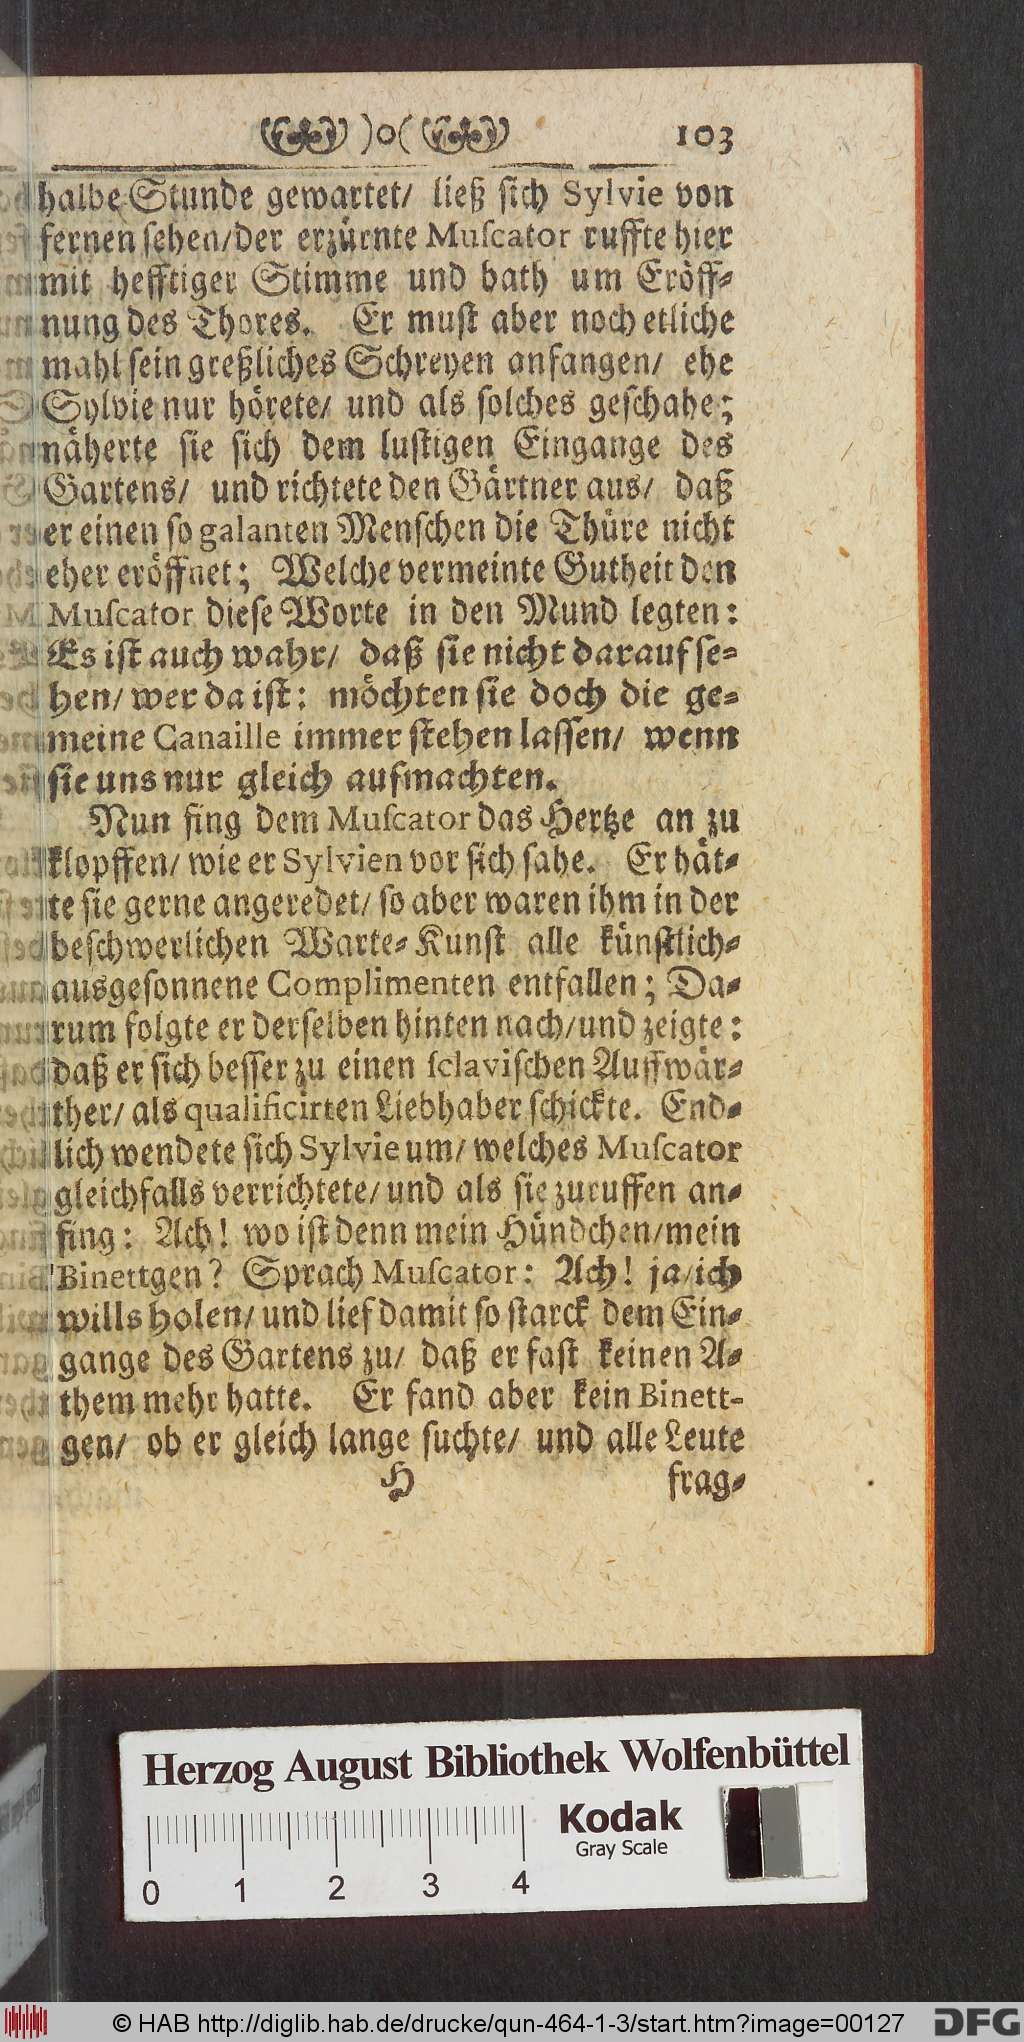 )o( 103
halbe Stunde gewartet/ ließ sich Sylvie von
fernen sehen/der erzürnte Muſcator ruffte hier
mit hefftiger Stimme und bath um Eröff-
nung des Thores. Er must aber noch etliche
mahl sein greßliches Schreyen anfangen/ ehe
Sylvie nur hörete/ und als solches geschahe;
näherte sie sich dem lustigen Eingange des
Gartens/ und richtete den Gärtner aus/ daß
er einen so galanten Menschen die Thüre nicht
eher eröffnet; Welche vermeinte Gutheit den
Muſcator diese Worte in den Mund legten:
Es ist auch wahr/ daß sie nicht darauf se-
hen/ wer da ist: möchten sie doch die ge-
meine Canaille immer stehen lassen/ wenn
sie uns nur gleich aufmachten.
Nun fing dem Muſcator das Hertze an zu
klopffen/ wie er Sylvien vor sich sahe. Er hät-
te sie gerne angeredet/ so aber waren ihm in der
beschwerlichen Warte-Kunst alle künstlich-
ausgesonnene Complimenten entfallen; Da-
rum folgte er derselben hinten nach/und zeigte:
daß er sich besser zu einen ſclaviſchen Auffwär-
ther/ als qualificirten Liebhaber schickte. End-
lich wendete sich Sylvie um/ welches Muſcator
gleichfalls verrichtete/ und als sie zuruffen an-
fing: Ach! wo ist denn mein Hündchen/mein
Binettgen? Sprach Muſcator: Ach! ja/ich
wills holen/ und lief damit so starck dem Ein-
gange des Gartens zu/ daß er fast keinen A-
them mehr hatte. Er fand aber kein Binett-
gen/ ob er gleich lange suchte/ und alle Leute
H frag-
Herzog August Bibliothek Wolfenbüttel
Kodak
Gray Scale
0 1 2 3 4
© HAB http://diglib.hab.de/drucke/qun-464-1-3/start.htm?image=00127
DFG